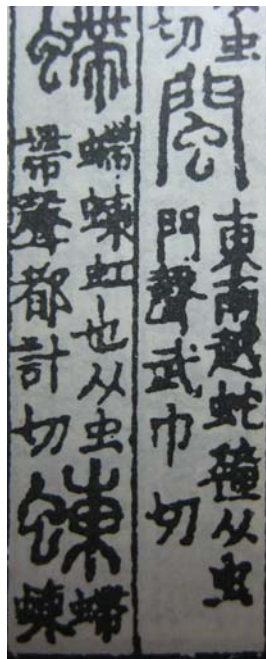 虫
切
閩
東南越蛇穜从虫
門聲武巾切
螮
螮蝀虹也从虫
帶聲都計切
蝀
螮
蝀